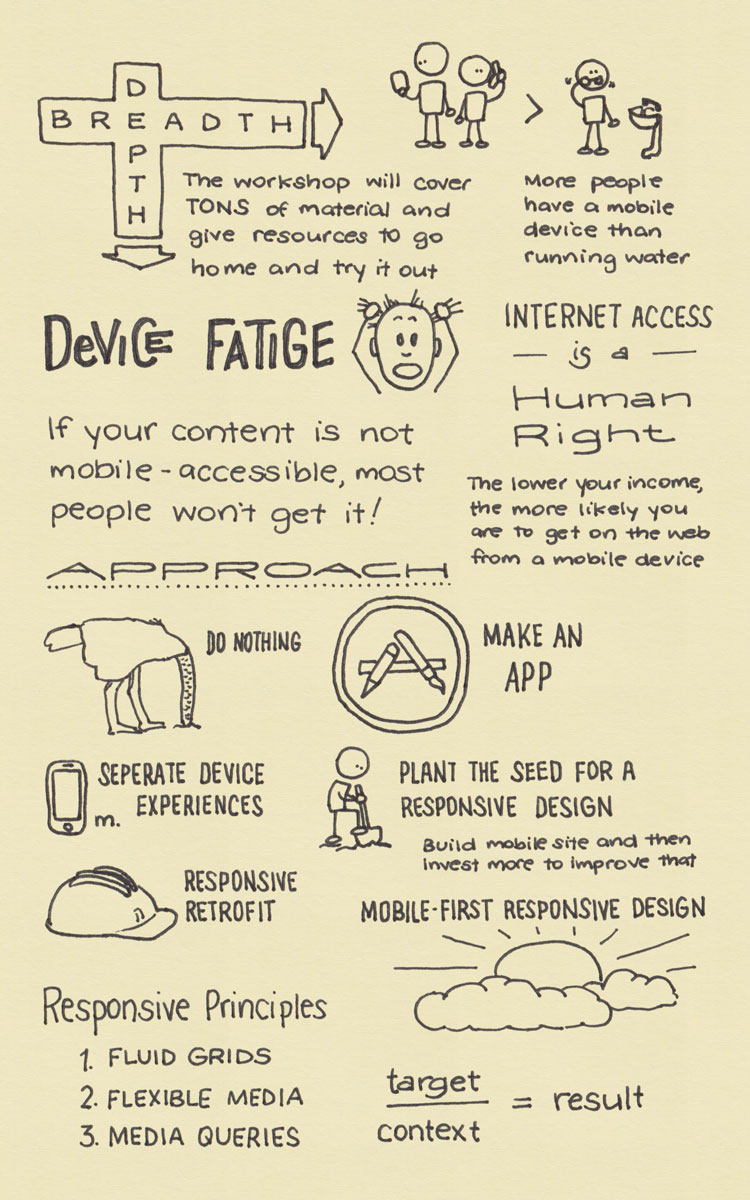 DEPTH
BREADTH
The workshop will cover
TONS of material and
give resources to go
home and try it out
>
More people
have a mobile
device than
running water
DeViCE FATIGE
If your content is not
mobile-accessible, most
people won't get it!
INTERNET ACCESS
— is a —
Human
Right
The lower your income,
the more likely you
are to get on the web
from a mobile device
APPROACH
DO NOTHING
MAKE AN
APP
SEPERATE DEVICE
m. EXPERIENCES
PLANT THE SEED FOR A
RESPONSIVE DESIGN
Build mobile site and then
invest more to improve that
RESPONSIVE
RETROFIT
MOBILE-FIRST RESPONSIVE DESIGN
Responsive Principles
1. FLUID GRIDS
2. FLEXIBLE MEDIA
3. MEDIA QUERIES
target
context
= result